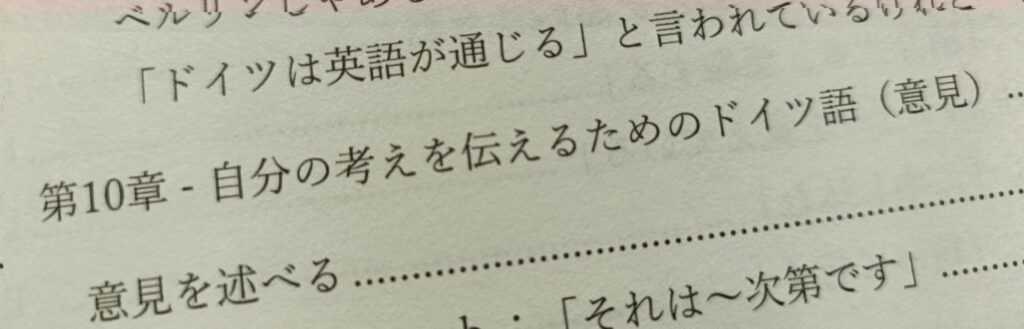 ベルリン
「ドイツは英語が通じる」と言われているけれど
第10章 - 自分の考えを伝えるためのドイツ語（意見）...
意見を述べる....................................................
：「それは～次第です」..........